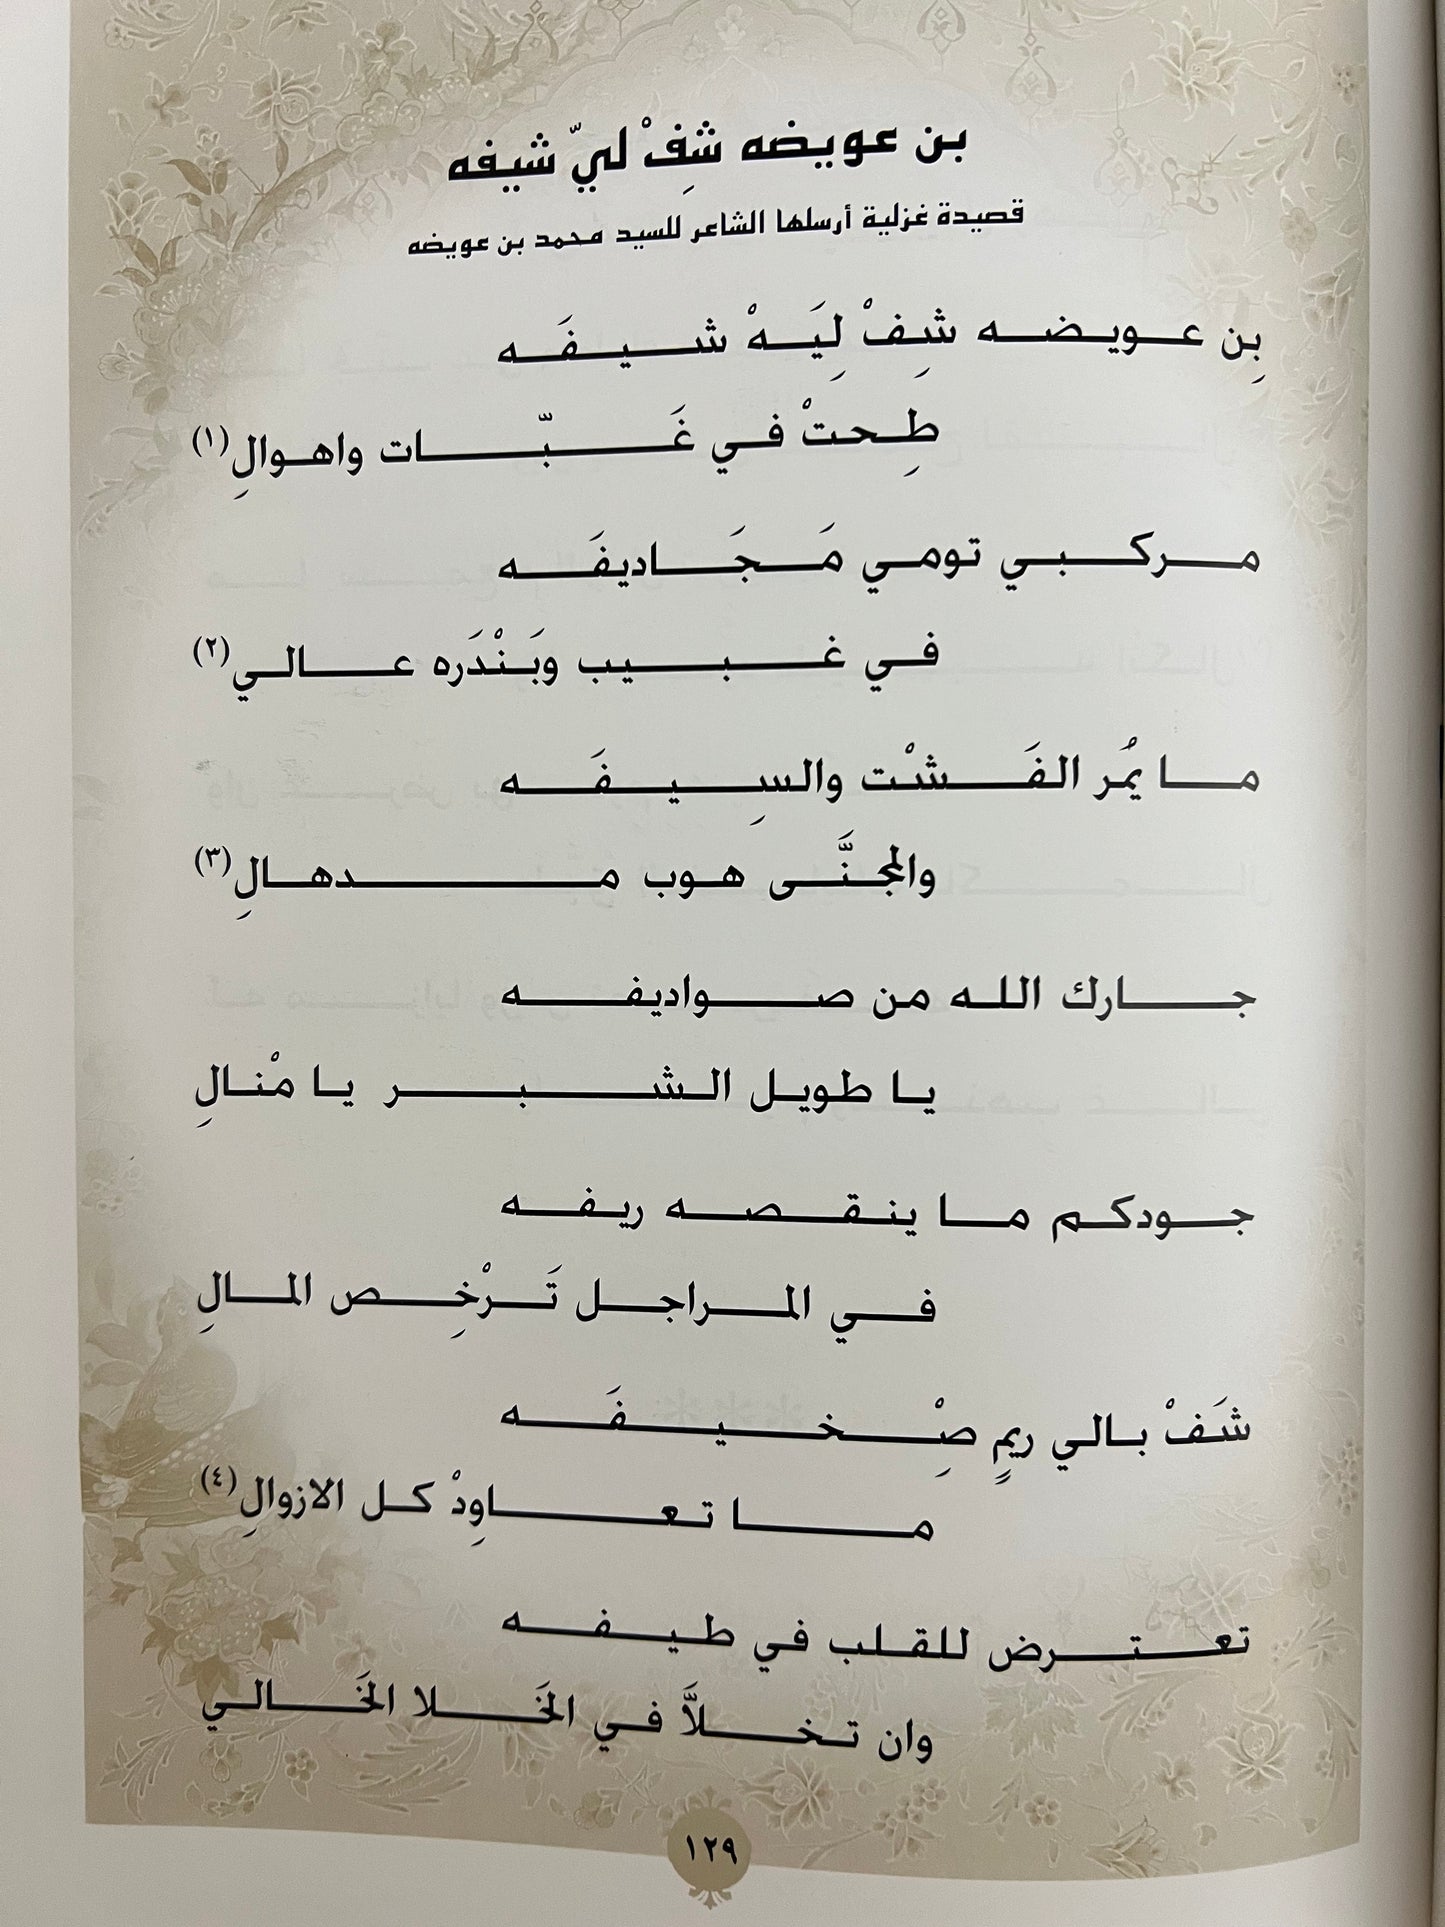 بن عويضه شِفْ ليّ شيفه
قصيدة غزلية أرسلها الشاعر للسيد محمد بن عويضه
بِن عويضه شِفْ لِيَهْ شيفَه
طِحتْ في غَبّات واهوالِ(١)
مركبي تومي مَجَاديفَه
في غبيب وبَنْدَره عالي(٢)
ما يمُر الفَشْت والسِيفَه
والمجنَّى هوب مدهالِ(٣)
جارك الله من صواديفه
يا طويل الشبر يا مْنالِ
جودكم ما ينقصه ريفه
في المراجل تَرْخِص المالِ
شَفْ بالي ريمٍ صِْخيفَه
ما تعاوِدْ كل الازوالِ(٤)
تعترض للقلب في طيفه
وان تخلاَّ في الخَلا الخَالي
١٢٩